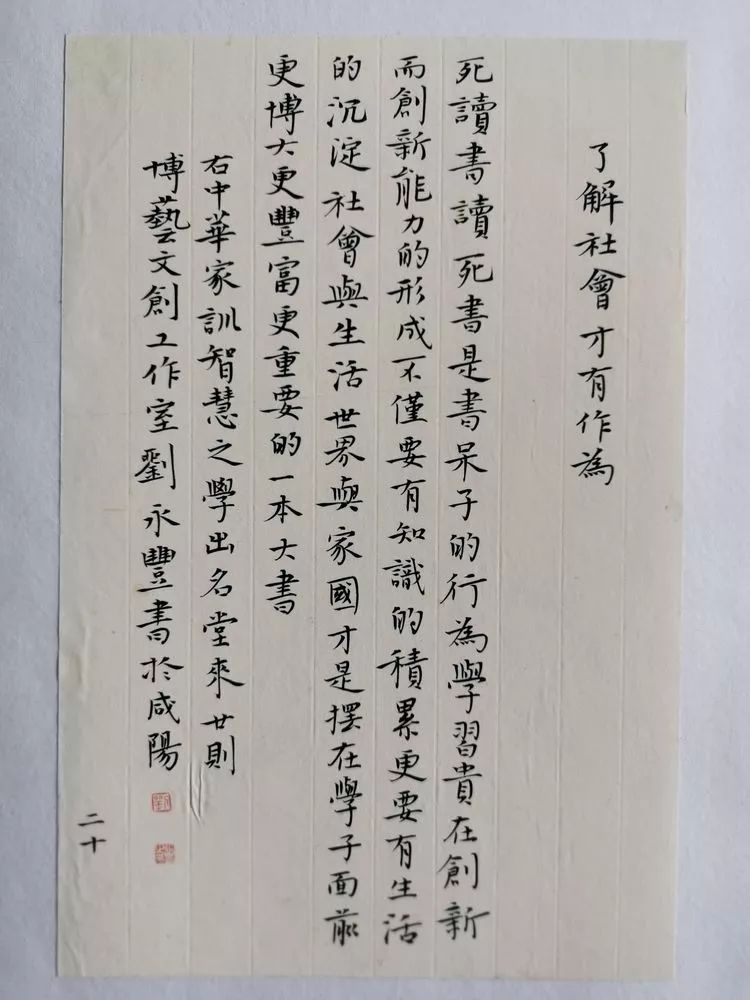 了解社會才有作為
死讀書讀死書是書呆子的行為學習貴在創新
而創新能力的形成不僅要有知識的積累更要有生活
的沉淀社會與生活世界與家國才是擺在學子面前
更博大更豐富更重要的一本大書
右中華家訓智慧之學出名堂來廿則
博藝文創工作室劉永豐書於咸陽
二十